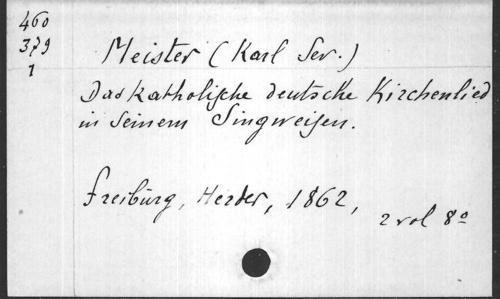 460
379
1
Meister (Karl Sev.)
Das katholische deutsche Kirchenlied
in seinem Singweisen.
Freiburg, Herder, 1862,
2 vol 8°